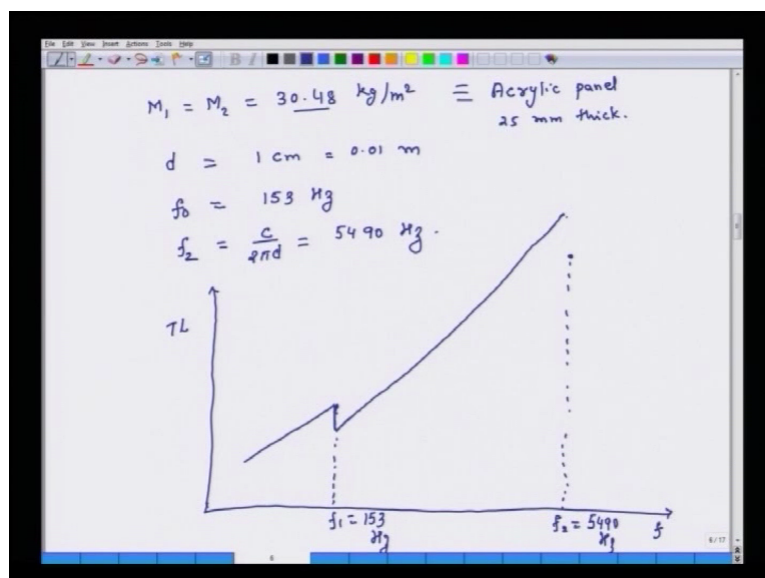 File Edit View Insert Actions Tools Help
M₁ = M₂ = 30.48 kg/m² ≡ Acrylic panel
25 mm thick.
d = 1 cm = 0.01 m
f₀ = 153 Hz
f₂ = c/2πd = 5490 Hz.
TL
f₁ = 153 Hz
f₂ = 5490 Hz
f
6
8/17